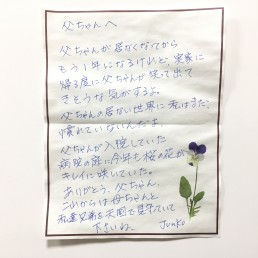 父ちゃんへ
父ちゃんが居なくなってから
もう1年になるけれど、実家に
帰る度に父ちゃんが笑って出て
きそうな気がするよ。
父ちゃんの居ない世界に私はまだ
慣れていないんだよ
父ちゃんが入院していた
病院の庭に今年も桜の花が
キレイに咲いていた。
ありがとう、父ちゃん。
これからは母ちゃんと
私達兄弟を天国で見守ってて
下さいね。 Junko